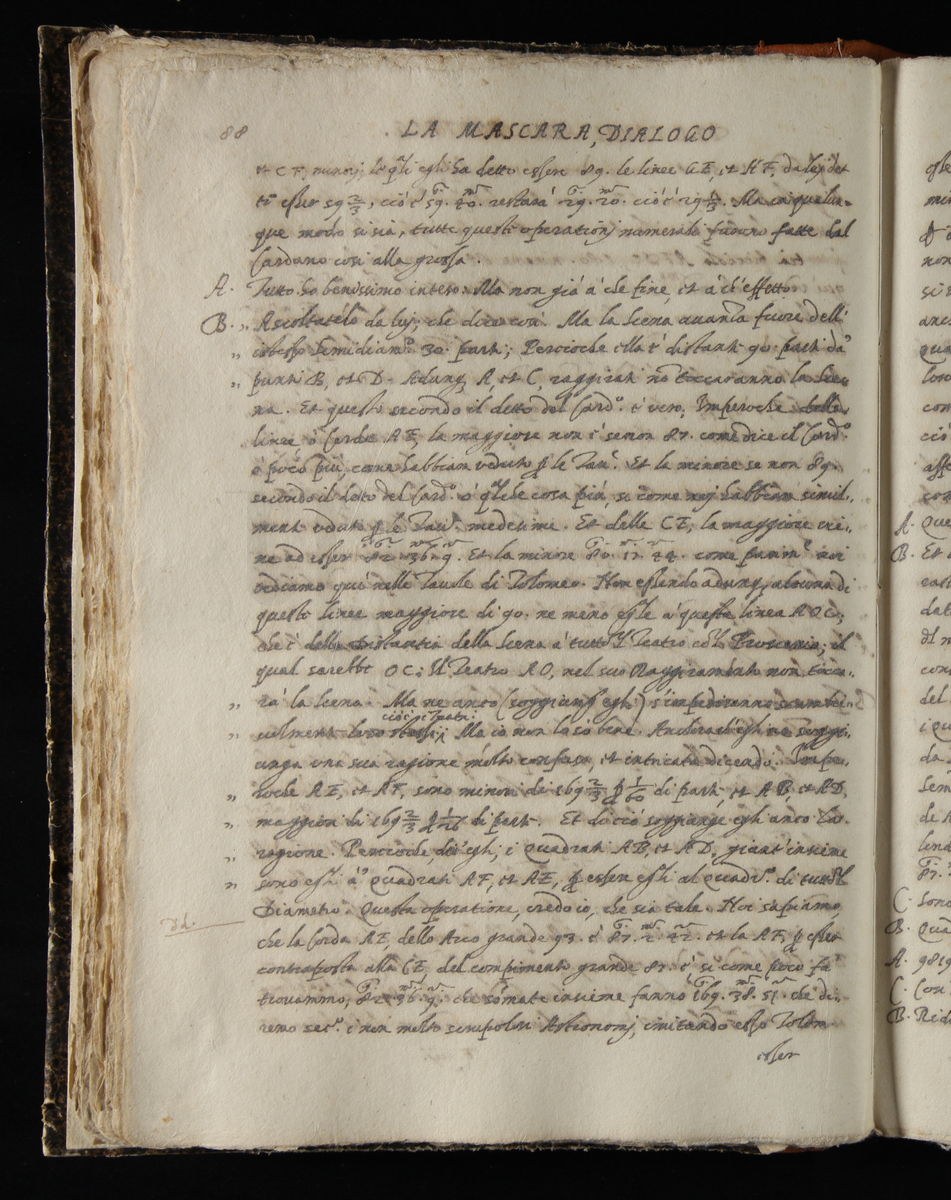 88
LA MASCARA, DIALOGO
et CF, li q̃li egli ha detto essere 89. le linee CE, et AF, da lej det
te esser 59 2/3, ciò è 59. 40. restarà 29. 20. ciò è 29 1/3. Ma in qualun=
que modo si sia, tutte queste operationj numerali furono fatte dal
Cardano cosi alla grossa.
A. Tutto ho benissimo inteso. Ma non già à che fine, et à ch'effetto.
B. „ Ascoltatelo da luj, che dice così. Ma la Scena auanza fuore dell'
„ istesso Semidiam.º 30. parti; Percioche ella è distante 90. parti da'
„ punti B, et D. Adunq, A, et C, raggirati nõ toccaranno la Sce=
na. Et questo secondo il detto del Card.º è vero, Imperoche delle
linee ò Corde AE, la maggiore non è senon 87. come dice il Card.º
ò poco più, come habbiam veduto p le Tau.e Et la minore se non 89.
secondo il detto del Card.º ò q̃lche cosa più, si come noj habbiam simil=
mente veduto p le Tau.e medesime. Et delle CE, la maggiore vie=
ne ad esser 82. 36. 9. Et la minore 80. 12. 44. come parim.e noi
vediamo quì nelle Tauole di Tolomeo. Non essendo adunq, alcuna di
queste linee maggiore di 90. ne meno eg̃le à questa linea AOC,
che è della Distantia della Scena à tutto 'l Teatro co'l Proscenio; il
qual sarebbe OC; Il Teatro AO, nel suo Raggiramento non tocca=
„ rà la Scena. Ma ne anco (soggiung' egli) s'impediranno scambie=
ciò è i Teatri
„ uolmente loro stessi; Ma io non la so bene. Ancorch'egli ne soggi=
unga una sua ragione molto confusa, et intricata dicendo. Impe=
„ roche AE, et AF, sono minori di 169 2/3 p 1/60 di parte, et AB, et AD,
„ maggiori di 169 2/3 di parte. Et di ciò soggiunge egli anco la
„ ragione. Percioche, dic'egli, i Quadrati AB, et AD, giunt'insieme
„ sono eg̃li à i Quadrati AF, et AE, p esser eg̃li al Quadr.º di tutto 'l
Diametro. Questa operatione, credo io, che sia tale. Noi sappiamo,
che la Corda AE, dello Arco grande 93. è 87. 2. 42. et la AF, p esser
contraposta alla CE, del compimento grande 87. è si come poco fa
trovammo, 82. 36. 9. che sõmate insieme fanno 169. 38. 51. che di=
remo sec.º i non molto scrupolosi Astronomj, imitando esso Tolom
esser